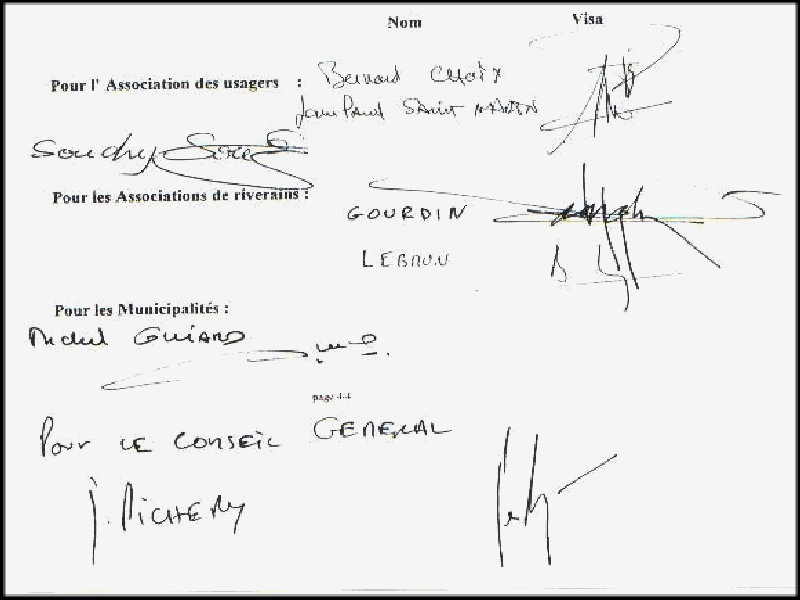 Nom Visa
Pour l' Association des usagers : Bernard CHOIX
Jean Paul SAINT MARTIN
Pour les Associations de riverains :
GOURDIN
LEBRUN
Pour les Municipalités :
Michel GUIARD
page 4.4
Pour LE CONSEIL GENERAL
J. MICHERY